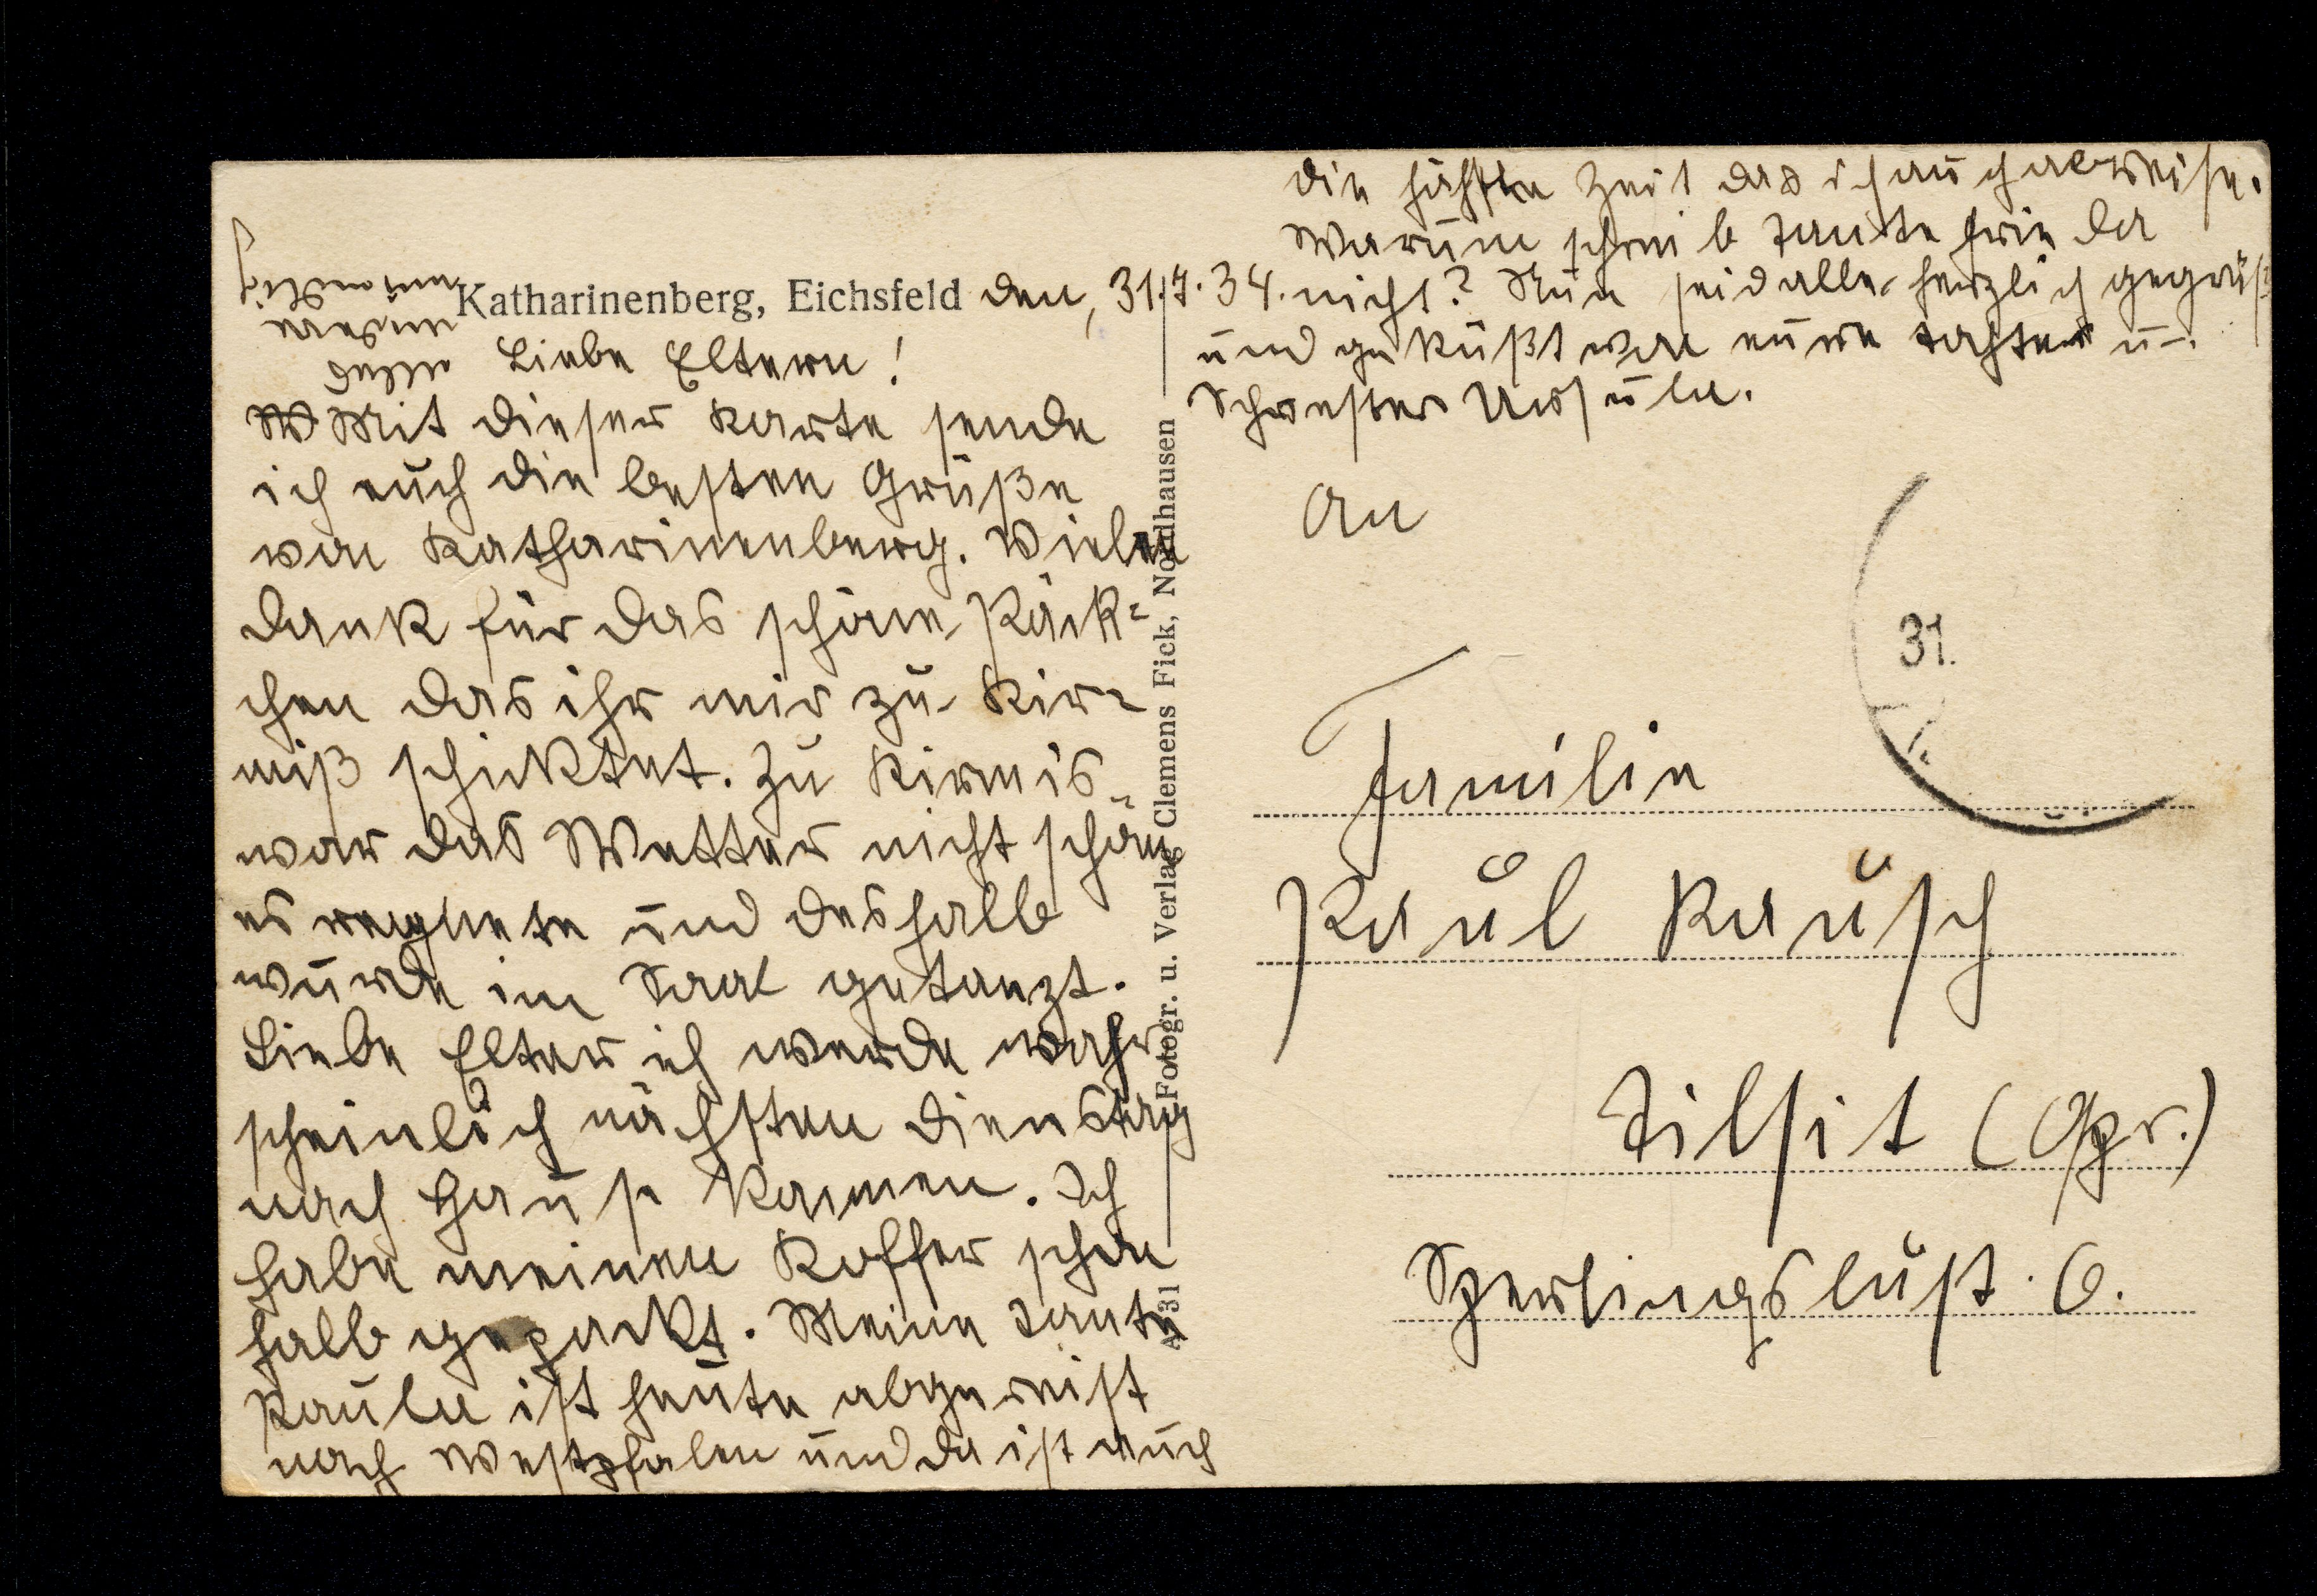 Katharinenberg, Eichsfeld den, 31.7.34.
Liebe Eltern!
Mit dieser Karte sende
ich euch die besten Grüße
von Katharinenberg. Vielen
Dank für das schöne Päck-
chen das ihr mir zu Kir-
miß schicktet. Zu Kirmis
war das Wetter nicht schön
es regnete und deshalb
wurde im Saal getanzt.
Liebe Elter ich werde wahr
scheinlich nächsten Dienstag
nach Hause kommen. Ich
habe meinen Koffer schon
halb gepackt. Meine Tante
Paula ist heute abgereist
nach Westpfalen und da ist auch
die höchste Zeit das ich auch abreise.
Warum schreib Tante Frieda
nicht? Nun seid alle herzlich gegrüß
und geküßt von eure tochter u.
Schwester Ursula.
An
Familie
Paul Rausch
Tilsit (Opr.)
Sperlingslust. 6.
31.
A 31
Fotogr. u. Verlag Clemens Fick, Nordhausen